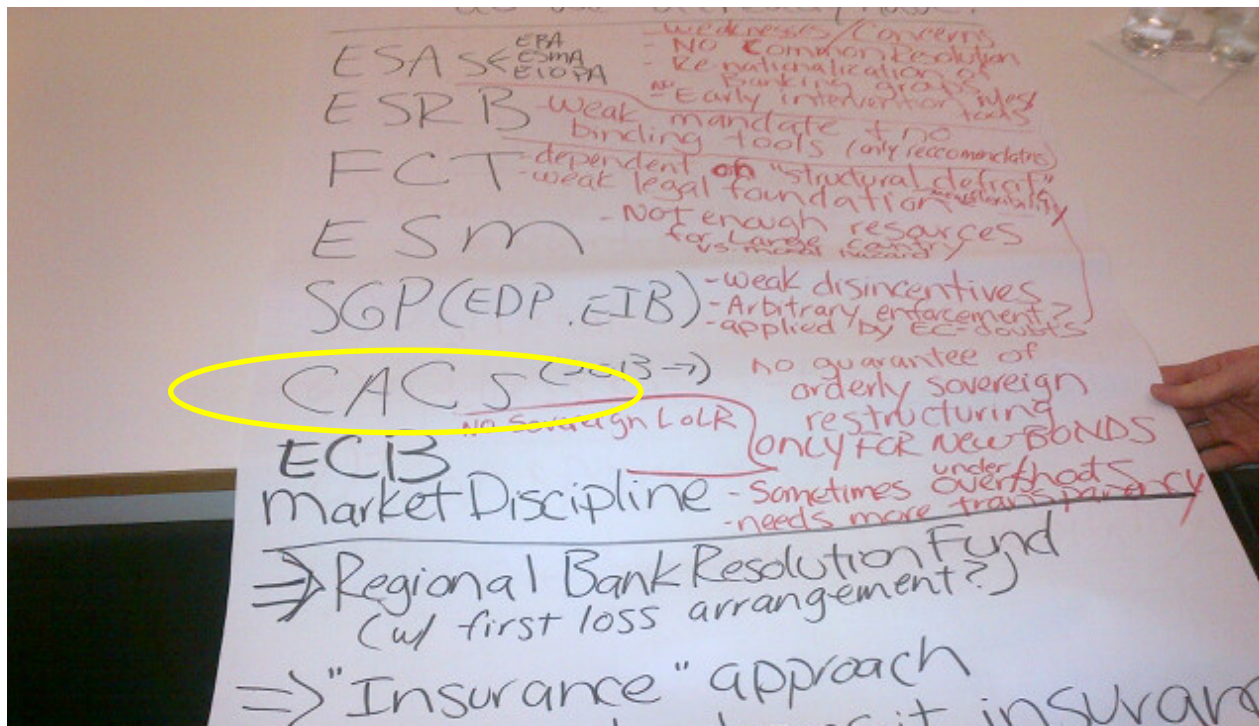 ESAs < EBA ESMA EIOPA
- weaknesses/Concerns
- No Common Resolution
- Renationalization of Banking groups
- no Early intervention rules/tools
ESRB - weak mandate + no
binding tools (only reccomendations)
FCT - dependent on "structural deficit"
- weak legal foundation
ESM - Not enough resources
for Large country
vs moral hazard
SGP (EDP, EIB) - weak disincentives
- Arbitrary enforcement?
- applied by EC-doubts
CACs (2013→) no guarantee of
orderly sovereign
restructuring
only FOR NEW BONDS
ECB No Sovereign LoLR
Market Discipline - Sometimes under overshoots
- needs more transparency
⇒ Regional Bank Resolution Fund
(w/ first loss arrangement?)
⇒ "Insurance" approach
insuran